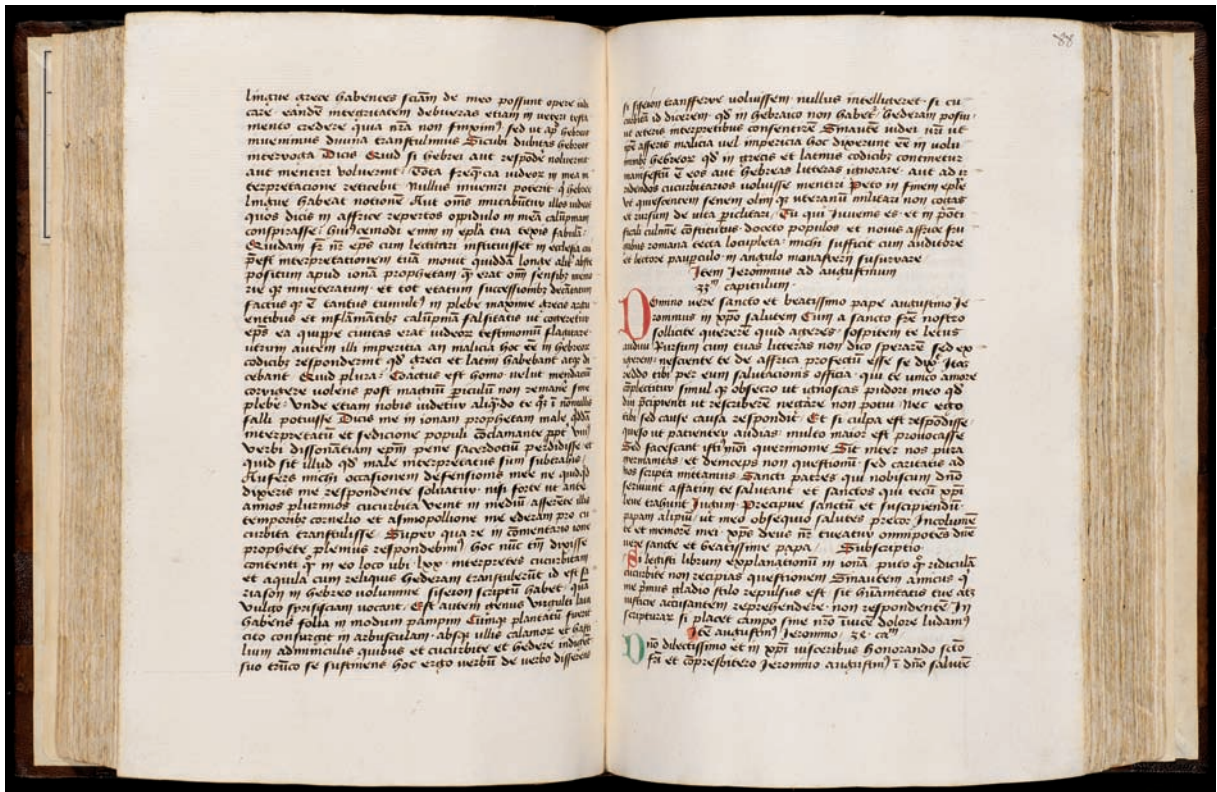 lingue grece habentes sciam de meo possunt opere iudi
care eandē integritatem debueras etiam in veteri testa
mento credere quia nrā non finximꝰ sed ut apᵈ hebreos
invenimus divina transtulimus Sicubi dubitas hebreos
interroga Dicis Quid si hebrei aut respōdē noluerint
aut mentiri voluerint Tota freqn̄cia iudeoꝝ in mea in
terpretacione reticebit Nullus inveniri poterit qͥ hebree
lingue habeat notionē Aut om̄s imitabūtur illos iudeos
quos dicis in affrice repertos oppidulo in meā calūpniam
conspirasse huiꝰcemodi enim in epl̄a tua texis fabulā
Quidam fr̄ nr̄ ep̄s cum lectitari instituisset in ecclesia cui
p̄est interpretationem tuā movit quiddā longe alit̄ abs te
positum apud ionā prophetam qᵈ erat om̄ sensibꝫ memo
rie qꝫ inveteratum et tot etatum successionibꝫ decātatum
factus qꝫ ē tantus tumultꝰ in plebe maxime grecis argu
entibus et inflāmātibꝫ calūpniā falsitatis ut cogeretur
ep̄s ea quippe civitas erat iudeoꝝ testimoniū flagitare
utrum autem illi imperitia an malicia hoc eē in hebreos
codicibꝫ responderint qd̄ greci et latini habebant atqꝫ di
cebant Quid plura Coactus est homo velut mendaciū
corrigere volens post magnū ꝑiculū non remanē sine
plebe Unde etiam nobis videtur aliqn̄do te qꝫ ī nōnullis
falli potuisse Dicis me in ionam prophetam male qddā
interpretatū et sedicione populi cōclamante ꝓpt̄ uniꝰ
verbi dissonātiam epm̄ pene sacerdotiū perdidisse et
quid sit illud qd̄ male interpretatus sim subtrahis
Aufers michi occasionem defensionis mee ne quidqᵈ
dixeris me respondente solvatur nisi forte ut ante
annos plurimos cucurbita venit in mediū asserēte illis
temporibꝫ cornelio et asinopollione me ederam pro cu
curbita transtulisse Super qua re in cōmentario ione
prophete plenius respondebimꝰ hoc nūc tm̄ dixisse
contenti qꝫ in eo loco ubi lxx interpretes cucurbitam
et aquila cum reliquis hederam transtulerūt id est
in hebreo volumine siseron scriptū habet
vulgo syri siciam vocant Est autem genus virgulti lata
habens folia in modum pampini Cumqꝫ plantatū fuerit
cito consurgit in arbusculam absqꝫ ullis calamoꝝ et hasti
lium adminiculis quibus et cucurbite et hedere indiget
suo trūco se sustinens hoc ergo verbū de verbo disserens
88
si siseion transferre voluissem nullus intelligeret si cu
curbitā id dicerem qd̄ in hebraico non habet᷑ hederam posui
ut ceteris interpretibus consentirē Sinautē iudei nr̄i ut
ipē asseris malicia vel imperitia hoc dixerunt eē in volu
minibꝫ hebreoꝝ qd̄ in grecis et latinis codicibꝫ continetur
manifestū ē eos aut hebreas litteras ignorare aut ad ir
ridendos cucurbitarios voluisse mentiri Peto in finem epl̄e
ut quiescentem senem olim qꝫ veteranū militari non cogas
et rursum de vita ꝑiclitari Tu qui iuvenis es et in pōti
ficali culmine cōstitutus doceto populos et novis affrice fru
gibus romana tecta locupleta michi sufficit cum auditore
et lectore paupculo in angulo monasterii susurrare
Item Jeronimus ad augustinum
33ᵐ capitulum
Domino vere sancto et beatissimo pape augustino Je
ronimus in xp̄o salutem Cum a sancto fr̄e nostro
sollicite quererē quid ageres sospitem te letus
audivi Rursum cum tuas litteras non dico sperarē sed ex
igerem nesciente te de affrica profectū esse se dixᵗ Itaqꝫ
reddo tibi per eum salutacionis officia qui te unico amore
cōplectitur simul qꝫ obsecro ut ignoscas pudori meo qd̄
diu p̄cipienti ut rescriberē negare non potui Nec ego
tibi sed cause causa respondit Et si culpa est respōdisse
queso ut patienter audias multo maior est provocasse
Sed facescant istiꝰmōi querimonie Sit inter nos pura
germanitas et deinceps non questionū sed caritatis ad
nos scripta mittamus Sancti patres qui nobiscum dn̄o
serviunt affatim te salutant et sanctos qui tecū xp̄i
leve trahunt jugum Precipue sanctū et suscipiendū
papam alipiū ut meo obsequio salutes precor Incolumē
te et memorē mei xp̄s deus nr̄ tueatur om̄ipotēs dn̄e
vere sancte et beatissime papa Subscriptio
Si legisti librum explanationū in ionā puto qꝫ ridiculā
cucurbite non recipias questionem Sinautem amicus qͥ
me p̄mus gladio stilo repulsus est sit hūanitatis tue atqꝫ
iusticie accusantem reprehendere non respondentē In
scripturaꝝ si placet campo sine nr̄o īvicē dolore ludamꝰ
Itē augustinꝰ Jeronimo 34 caᵐ
Dn̄o dilectissimo et in xp̄i visceribus honorando sc̄to
fr̄i et cōpresbitero Jeronimo augustinꝰ ī dn̄o salutē